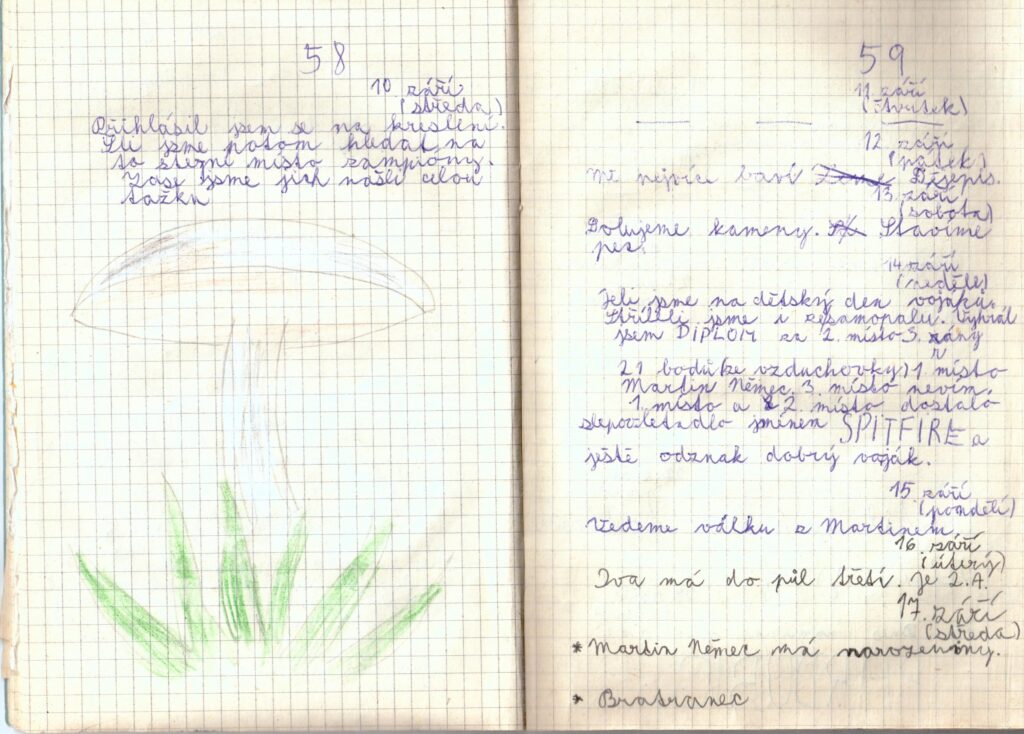 58
10. září
(středa)
Přihlásil jsem se na kreslení.
Šli jsme potom hledat na
to stejní místo žampiony.
Zase jsme jich našli celou
tažku
59
11. září
(čtvrtek)
12. září
(pátek)
Mě nejvíce baví Dějepis.
13. září
(sobota)
Dolujeme kameny. Stavíme
pez
14. září
(neděle)
Jeli jsme na dětský den vojáků.
Stříleli jsme i ze samopalu. Vyhrál
jsem DIPLOM za 2. místo 3. rány
21 bodů(ze vzduchovky) 1. místo
Martin Němec. 3. místo nevím.
1. místo a 2. místo dostalo
slepovletadlo jménem SPITFIRE a
ještě odznak dobrý voják.
15. září
(pondělí)
Vedeme válku z Martinem.
16. září
(úterý)
Iva má do půl třetí. Je 2.A.
17. září
(středa)
* Martin Němec má narozeniny.
* Bratranec